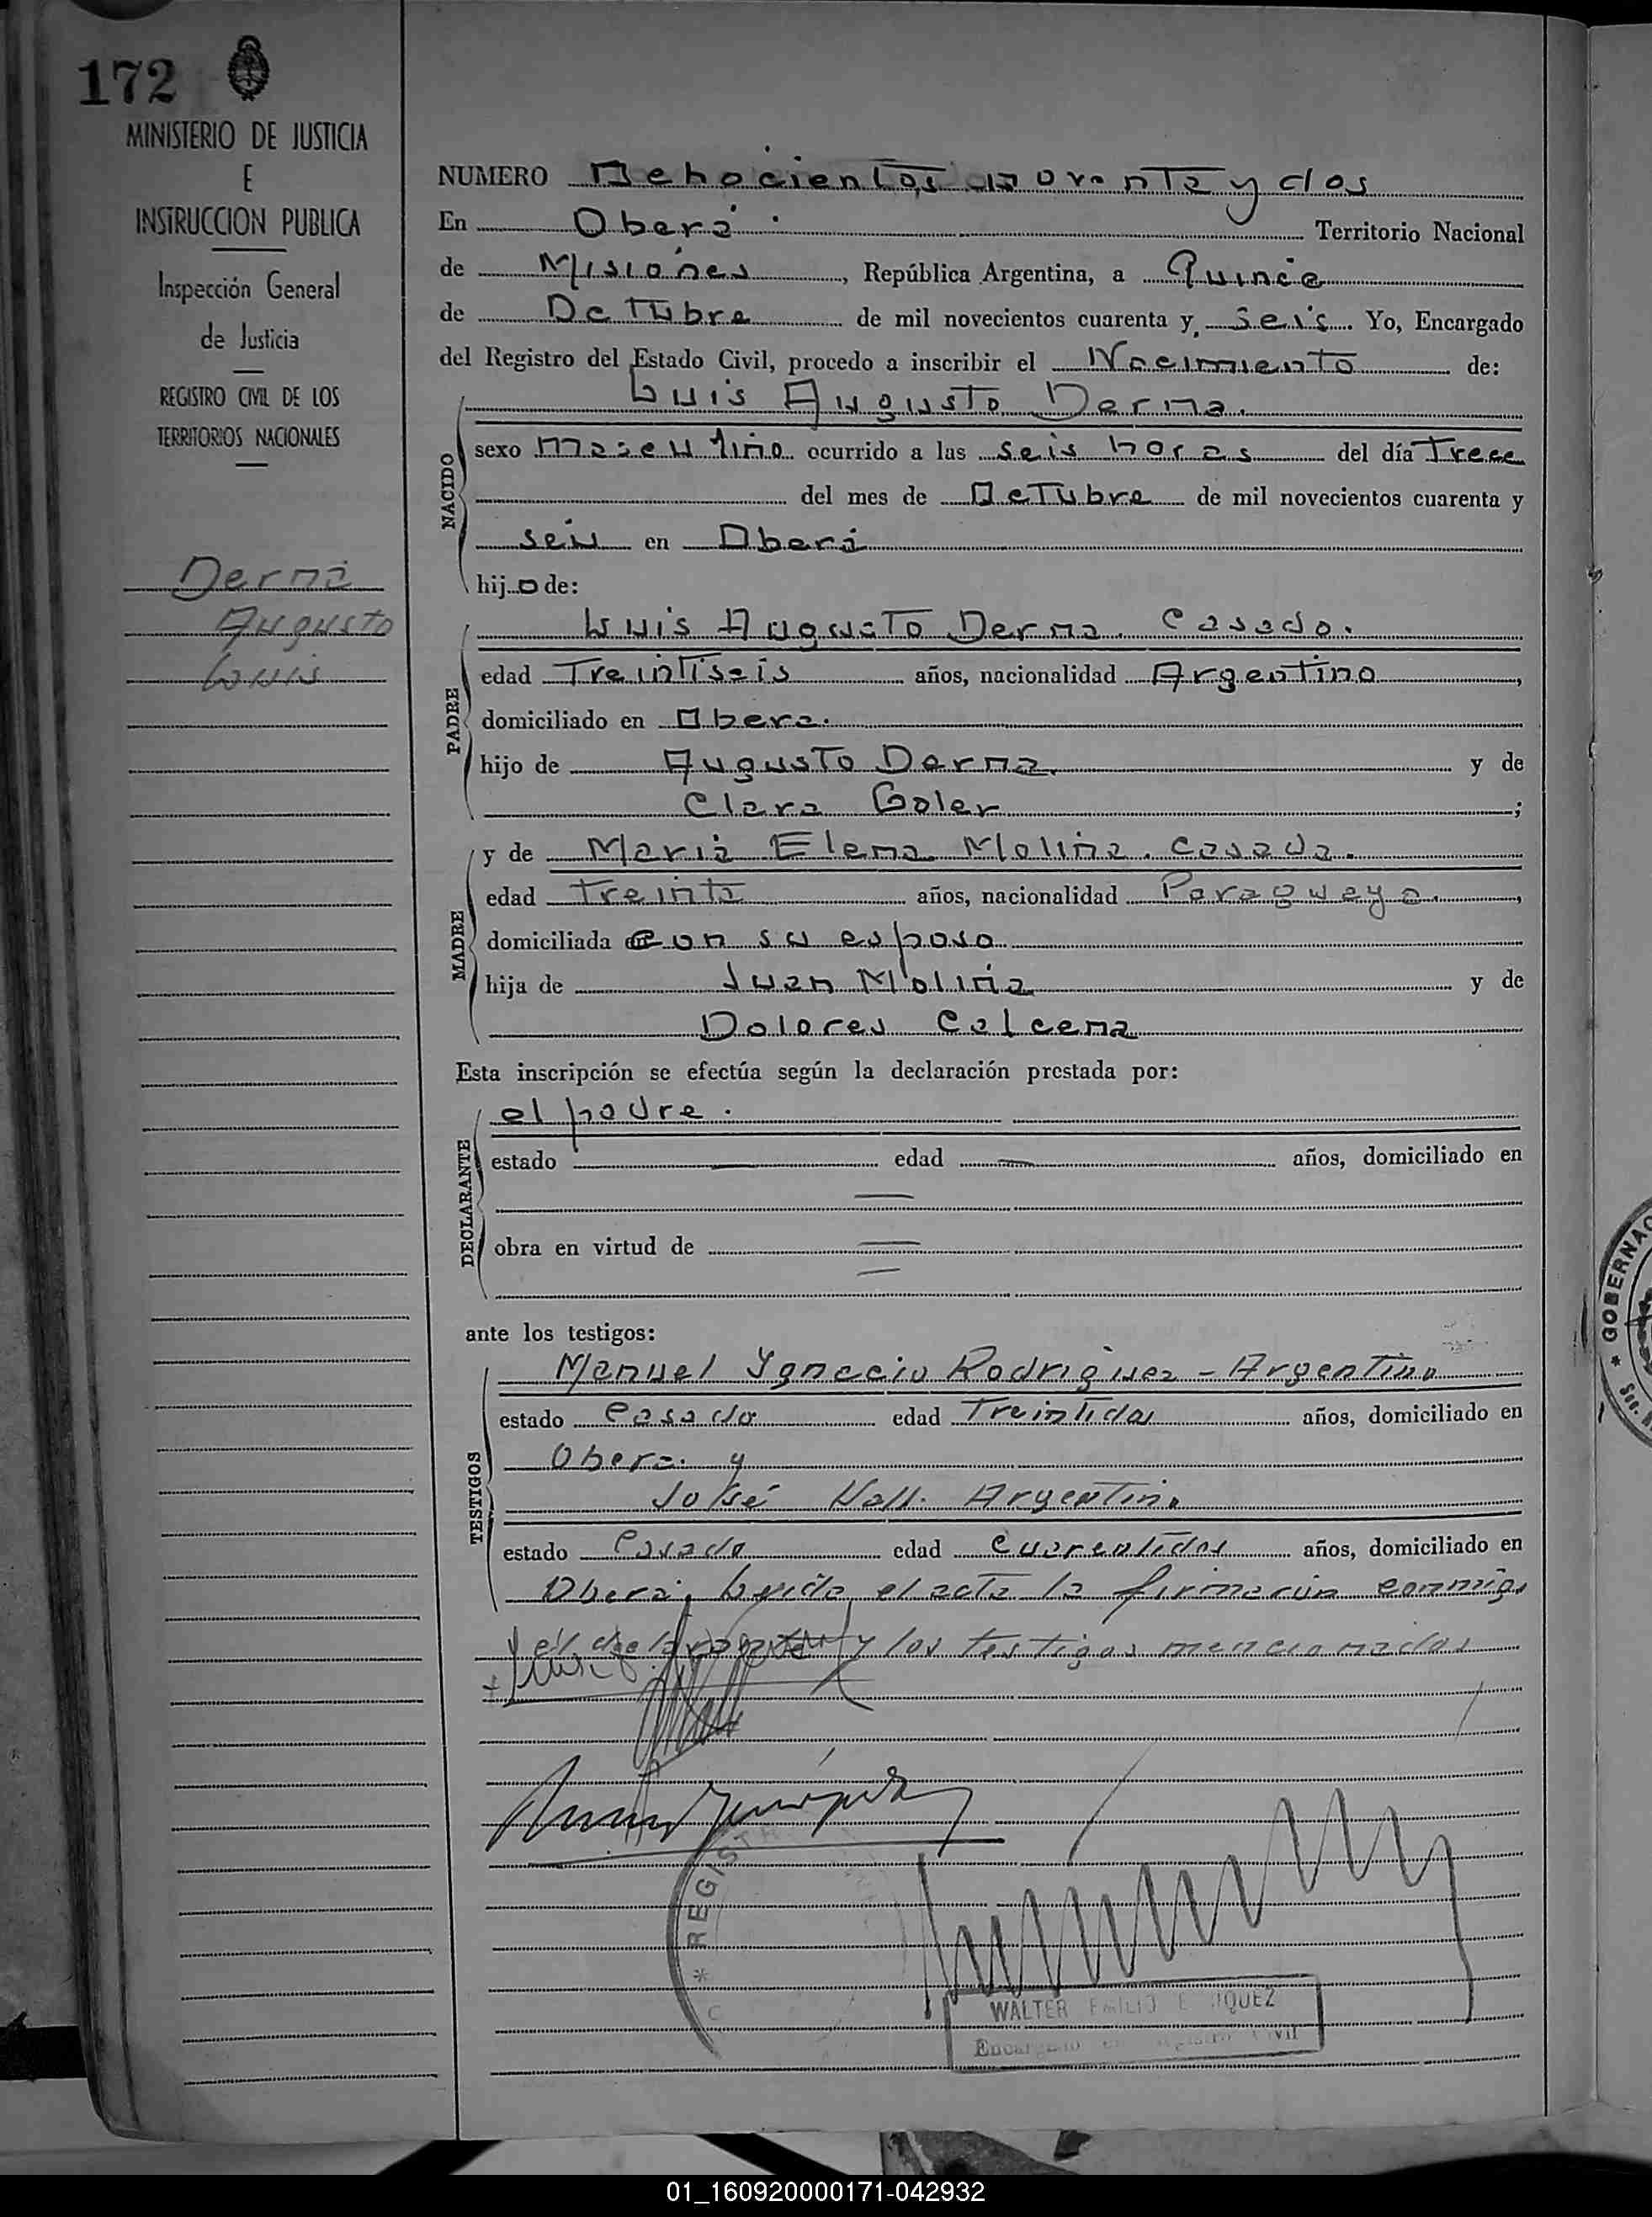 172
MINISTERIO DE JUSTICIA
E
INSTRUCCION PUBLICA
Inspección General
de Justicia
REGISTRO CIVIL DE LOS
TERRITORIOS NACIONALES
Derna
Augusto
Luis
NUMERO Ochocientos noventa y dos
En Oberá Territorio Nacional
de Misiones, República Argentina, a Quince
de Octubre de mil novecientos cuarenta y seis. Yo, Encargado
del Registro del Estado Civil, procedo a inscribir el Nacimiento de:
Luis Augusto Derna.
NACIDO
sexo masculino ocurrido a las seis horas del día Trece
del mes de Octubre de mil novecientos cuarenta y
seis en Oberá
hijo de:
PADRE
Luis Augusto Derna. Casado.
edad Treintiseis años, nacionalidad Argentino,
domiciliado en Obera.
hijo de Augusto Derna y de
Clara Goler;
MADRE
y de Maria Elena Molina. casada.
edad Treinta años, nacionalidad Paraguaya,
domiciliada con su esposo
hija de Juan Molina y de
Dolores Calcena
Esta inscripción se efectúa según la declaración prestada por:
DECLARANTE
el padre.
estado — edad — años, domiciliado en
obra en virtud de
ante los testigos:
TESTIGOS
Manuel Ygnacio Rodriguez - Argentino
estado Casado edad Treintidos años, domiciliado en
Obera. y
José Argentino
estado Casado edad Cuarentidos años, domiciliado en
Oberá. Leida el acta la firmarón conmigo
el declarante y los testigos mencionados
* REGISTR
WALTER EMILIO
Encargado Registro Civil
* GOBERNAC
Sec.
01_160920000171-042932